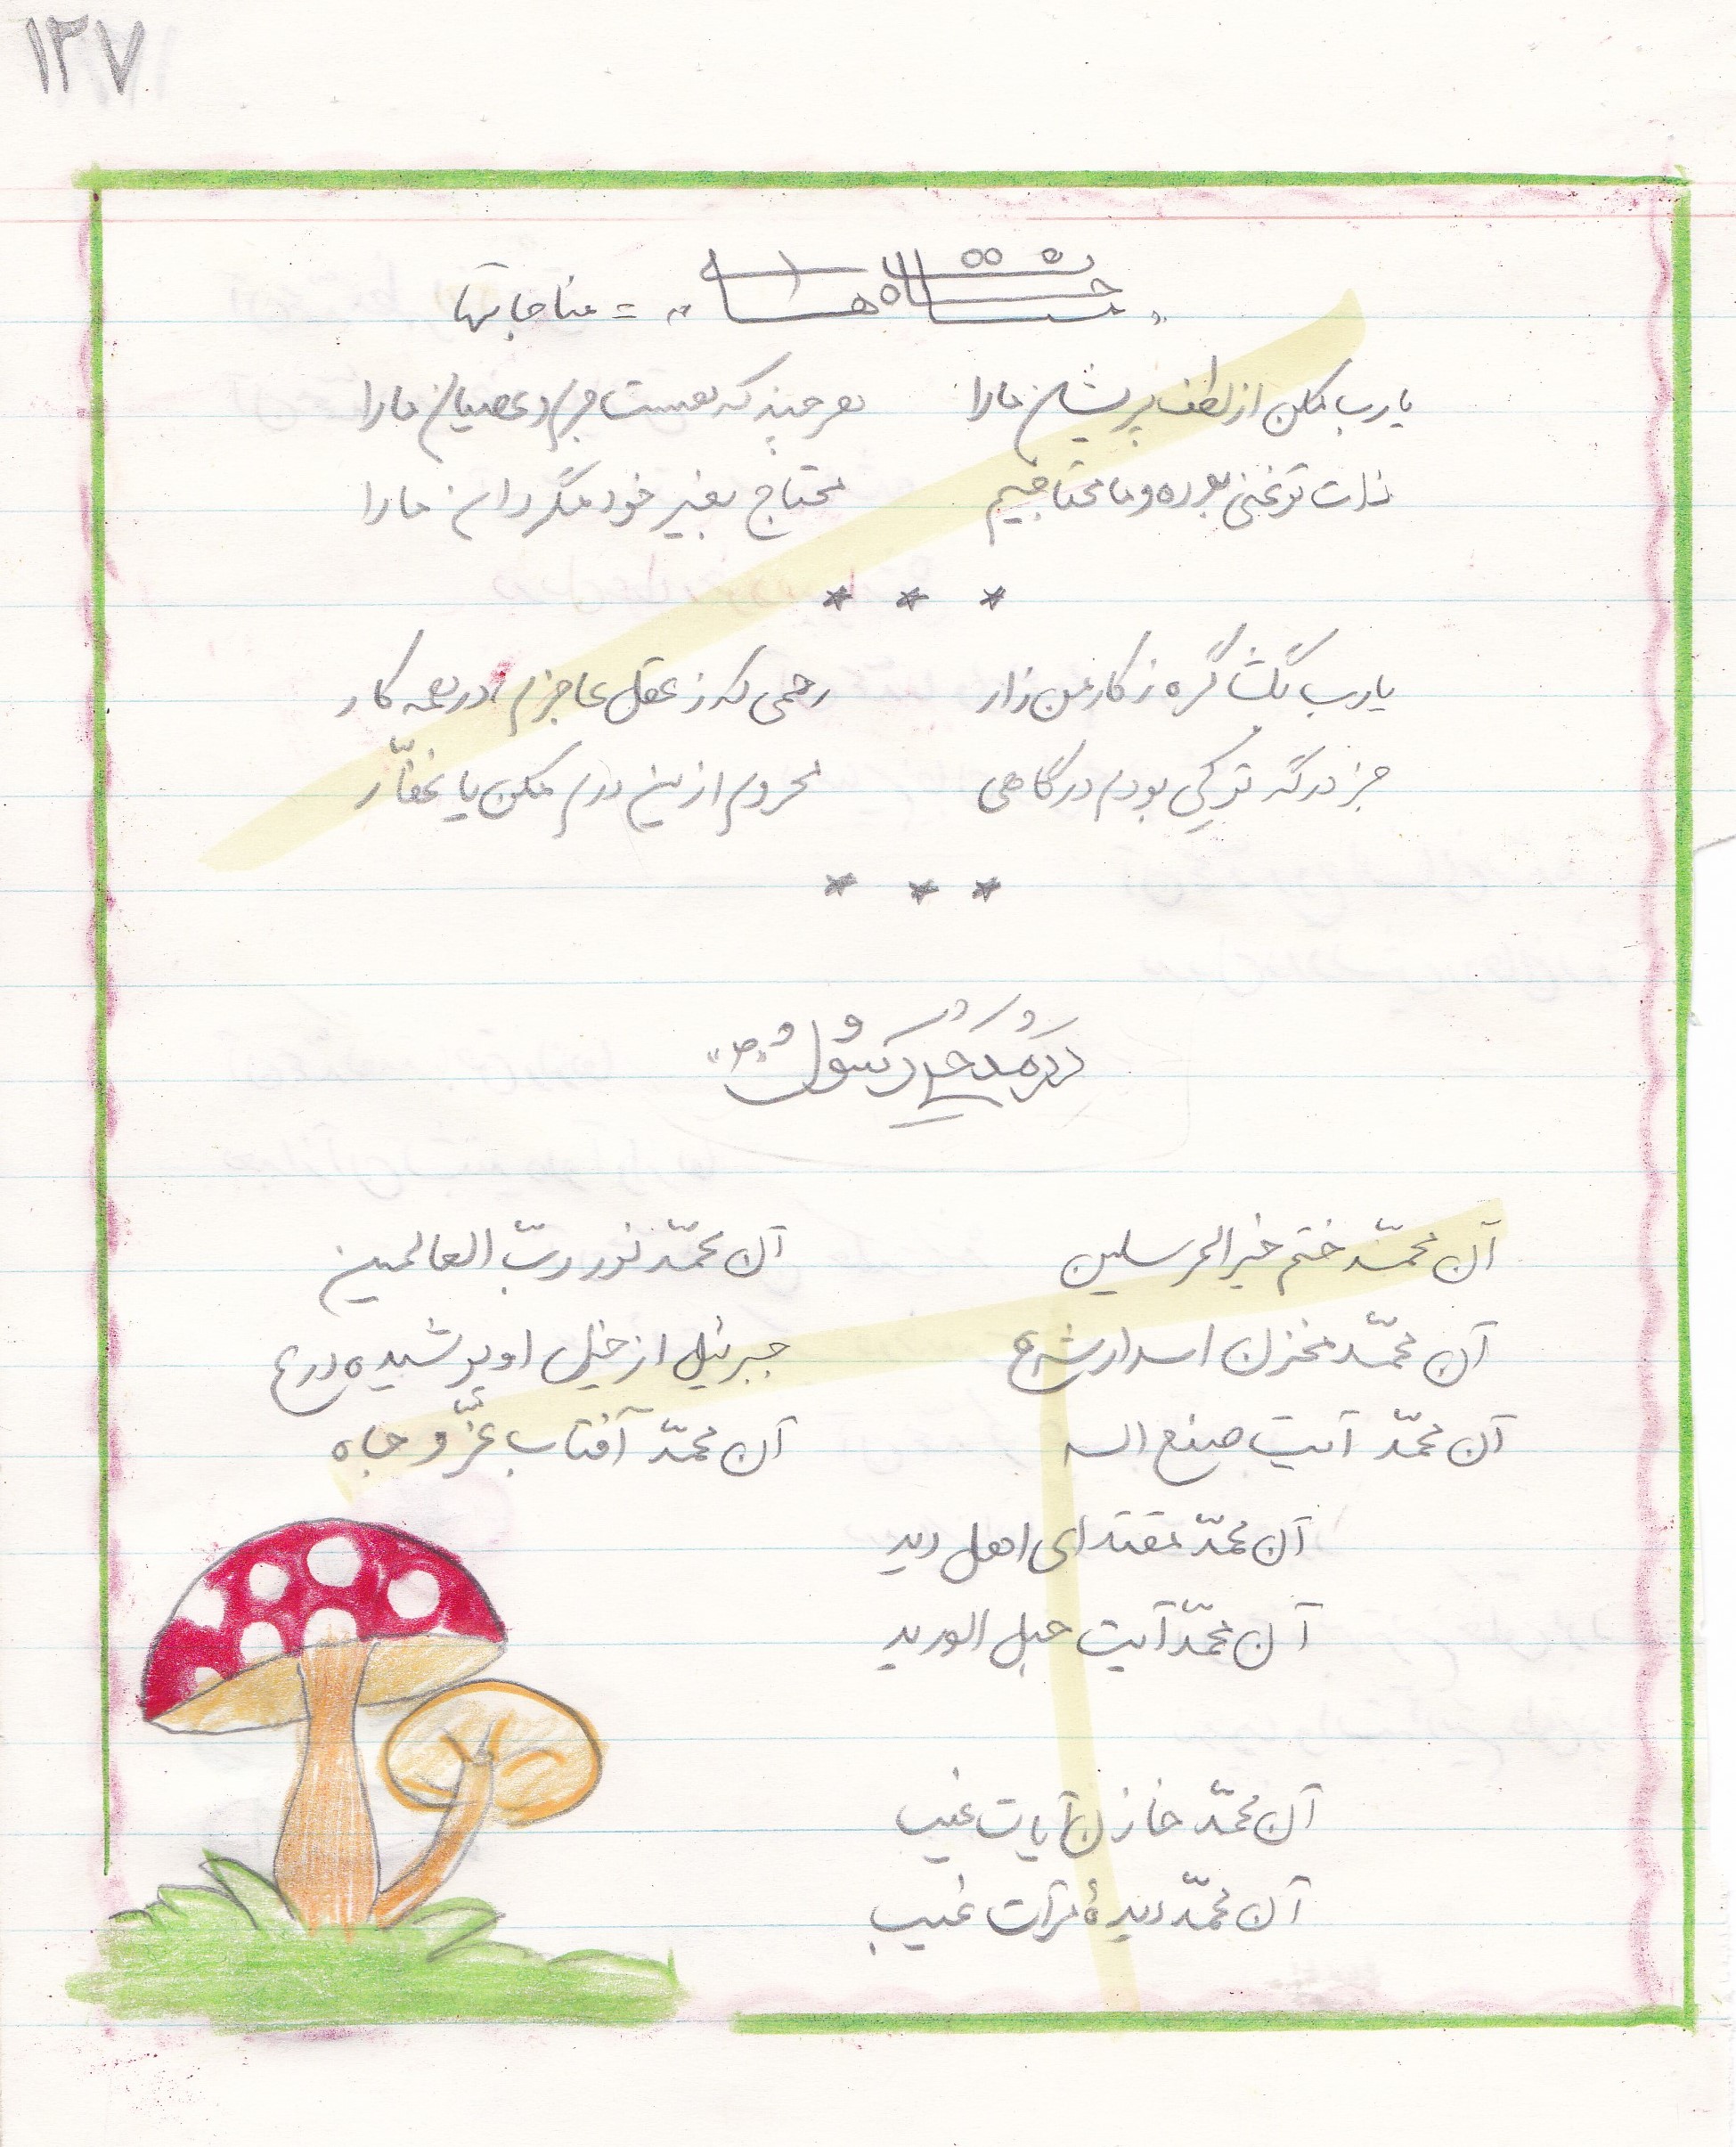 ۱۳۷
= مناجاتها
یارب مکن از لطف پریشان ما را هر چند که هست جرم و عصیان ما را
ذات تو غنی بوده و ما محتاجیم محتاج بغیر خود مگردان ما را
* * *
یارب بگشا گره ز کار من زار رحمی که ز عقل عاجزم در همه کار
جز درگه تو کی بودم درگاهی محروم ازین درم مکن یا غفّار
* * *
در مدح رسول "ص"
آن محمّد ختم خیر المرسلین آن محمّد نور ربّ العالمین
آن محمّد مخزن اسرار شرع جبرئیل از خیل او پوشیده درع
آن محمّد آیت صنع اله آن محمّد آفتاب عزّ و جاه
آن محمّد مقتدای اهل دید
آن محمّد آیت حبل الورید
آن محمّد خازن آیات غیب
آن محمّد دیدهٔ مرآت غیب